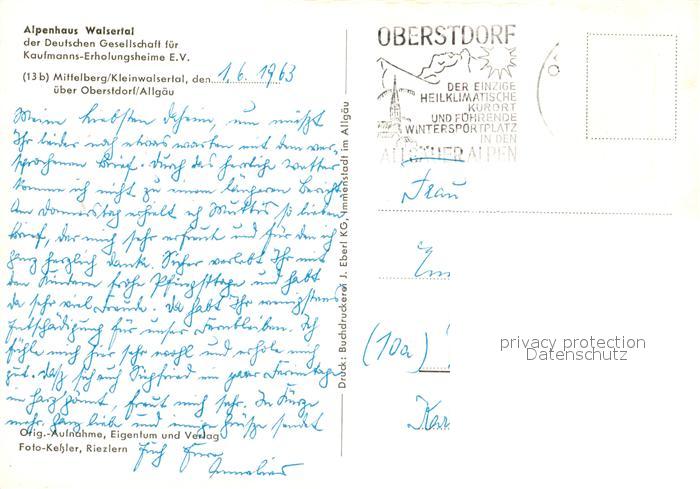 Alpenhaus Walsertal
der Deutschen Gesellschaft für
Kaufmanns-Erholungsheime E.V.
(13b) Mittelberg/Kleinwalsertal, den 1.6.1963
über Oberstdorf/Allgäu
Meine Liebsten daheim, nun müßt
Ihr leider noch etwas warten mit dem ver-
sprochenen Brief. Durch das herrliche Wetter
komme ich nicht zu einem längeren Bericht.
Am Donnerstag erhielt ich Muttis so lieben
Brief, der mich sehr erfreut und für den ich
ganz herzlich danke. Sicher verlebt Ihr mit
den Kindern frohe Pfingsttage und habt
da sehr viel Freude. Da habt Ihr wenigstens
Entschädigung für unser Fernbleiben. Ich
fühle mich hier sehr wohl und erhole mich
gut. Daß sich auch Siegfried ein paar Ferientage
im Harz gönnt, freut mich sehr. In Kürze
mehr. Ganz liebe und innige Grüße sendet
Euch Eure
Annelies
Orig.-Aufnahme, Eigentum und Verlag
Foto-Keßler, Riezlern
Druck: Buchdruckerei J. Eberl KG, Immenstadt im Allgäu
OBERSTDORF
DER EINZIGE
HEILKLIMATISCHE
KURORT
UND FÜHRENDE
WINTERSPORTPLATZ
IN DEN
ALLGÄUER ALPEN
Frau
(10a)
privacy protection
Datenschutz